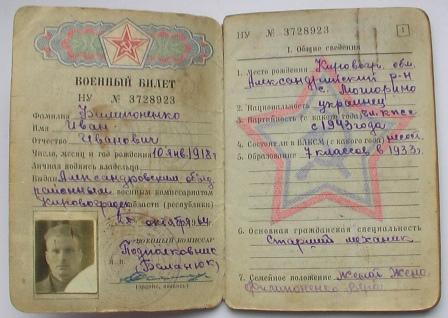 ВОЕННЫЙ БИЛЕТ
НУ № 3728923
Фамилия Филипоненко
Имя Иван
Отчество Иванович
Число, месяц и год рождения 10 янв 1918 г
Личная подпись владельца
Выдан Александровским объед.
районным военным комиссариатом
Кировоградской области (республики)
октября
ВОЕННЫЙ КОМИССАР
Подполковник
М. П.
НУ № 3728923
1
I. Общие сведения
1. Место рождения Кировогр. обл.
Александрийский р-н
с.
2. Национальность украинец
3. Партийность (с какого года) чл. КПСС
с 1943 года
4. Состоит ли в ВЛКСМ (с какого года)
5. Образование 7 классов в 1933 г.
6. Основная гражданская специальность
Старший механик
7. Семейное положение Жена
Филипоненко